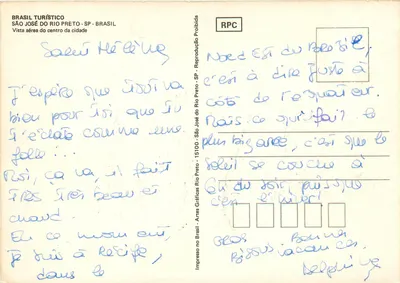 BRASIL TURÍSTICO
SÃO JOSÉ DO RIO PRETO - SP - BRASIL
Vista aérea do centro da cidade
RPC
Salut Hélèna
J'espère que tout va
bien pour toi, que tu
t'éclate comme une
folle...
Moi, ça va, il fait
très très beau et
chaud.
En ce moment,
je suis à Recife,
dans le
Nord Est du Brésil,
c'est à dire juste à
côté de l'équateur.
Mais ce qui fait le
plus bizarre, c'est que le
soleil se couche à
du soir, puisque
c'est l'hiver!
Gros Bonne
Bisous, vacances.
Delphine
Impresso no Brasil - Artes Gráficas Rio Preto - São José do Rio Preto - SP - Reprodução Proibida